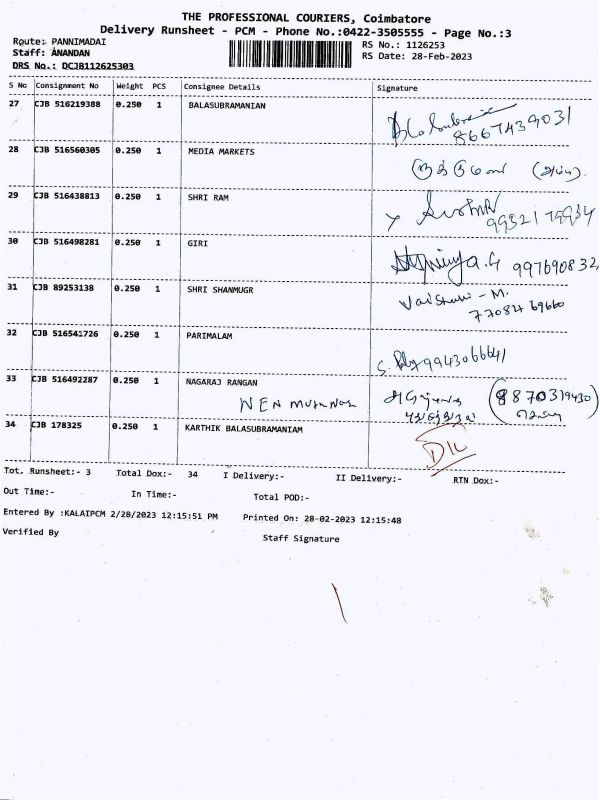 THE PROFESSIONAL COURIERS, Coimbatore
Delivery Runsheet - PCM - Phone No.:0422-3505555 - Page No.:3
Route: PANNIMADAI
RS No.: 1126253
Staff: ANANDAN
RS Date: 28-Feb-2023
DRS No.: DCJB112625303
S No Consignment No Weight PCS Consignee Details Signature
27 CJB 516219388 0.250 1 BALASUBRAMANIAN
8667439031
28 CJB 516560305 0.250 1 MEDIA MARKETS
29 CJB 516438813 0.250 1 SHRI RAM
30 CJB 516498281 0.250 1 GIRI
997690832
31 CJB 89253138 0.250 1 SHRI SHANMUGR
- M.
77084 69660
32 CJB 516541726 0.250 1 PARIMALAM
9943066641
33 CJB 516492287 0.250 1 NAGARAJ RANGAN
8870319430
34 CJB 178325 0.250 1 KARTHIK BALASUBRAMANIAM
Tot. Runsheet:- 3 Total Dox:- 34 I Delivery:- II Delivery:- RTN Dox:-
Out Time:- In Time:- Total POD:-
Entered By :KALAIPCM 2/28/2023 12:15:51 PM Printed On: 28-02-2023 12:15:48
Verified By Staff Signature